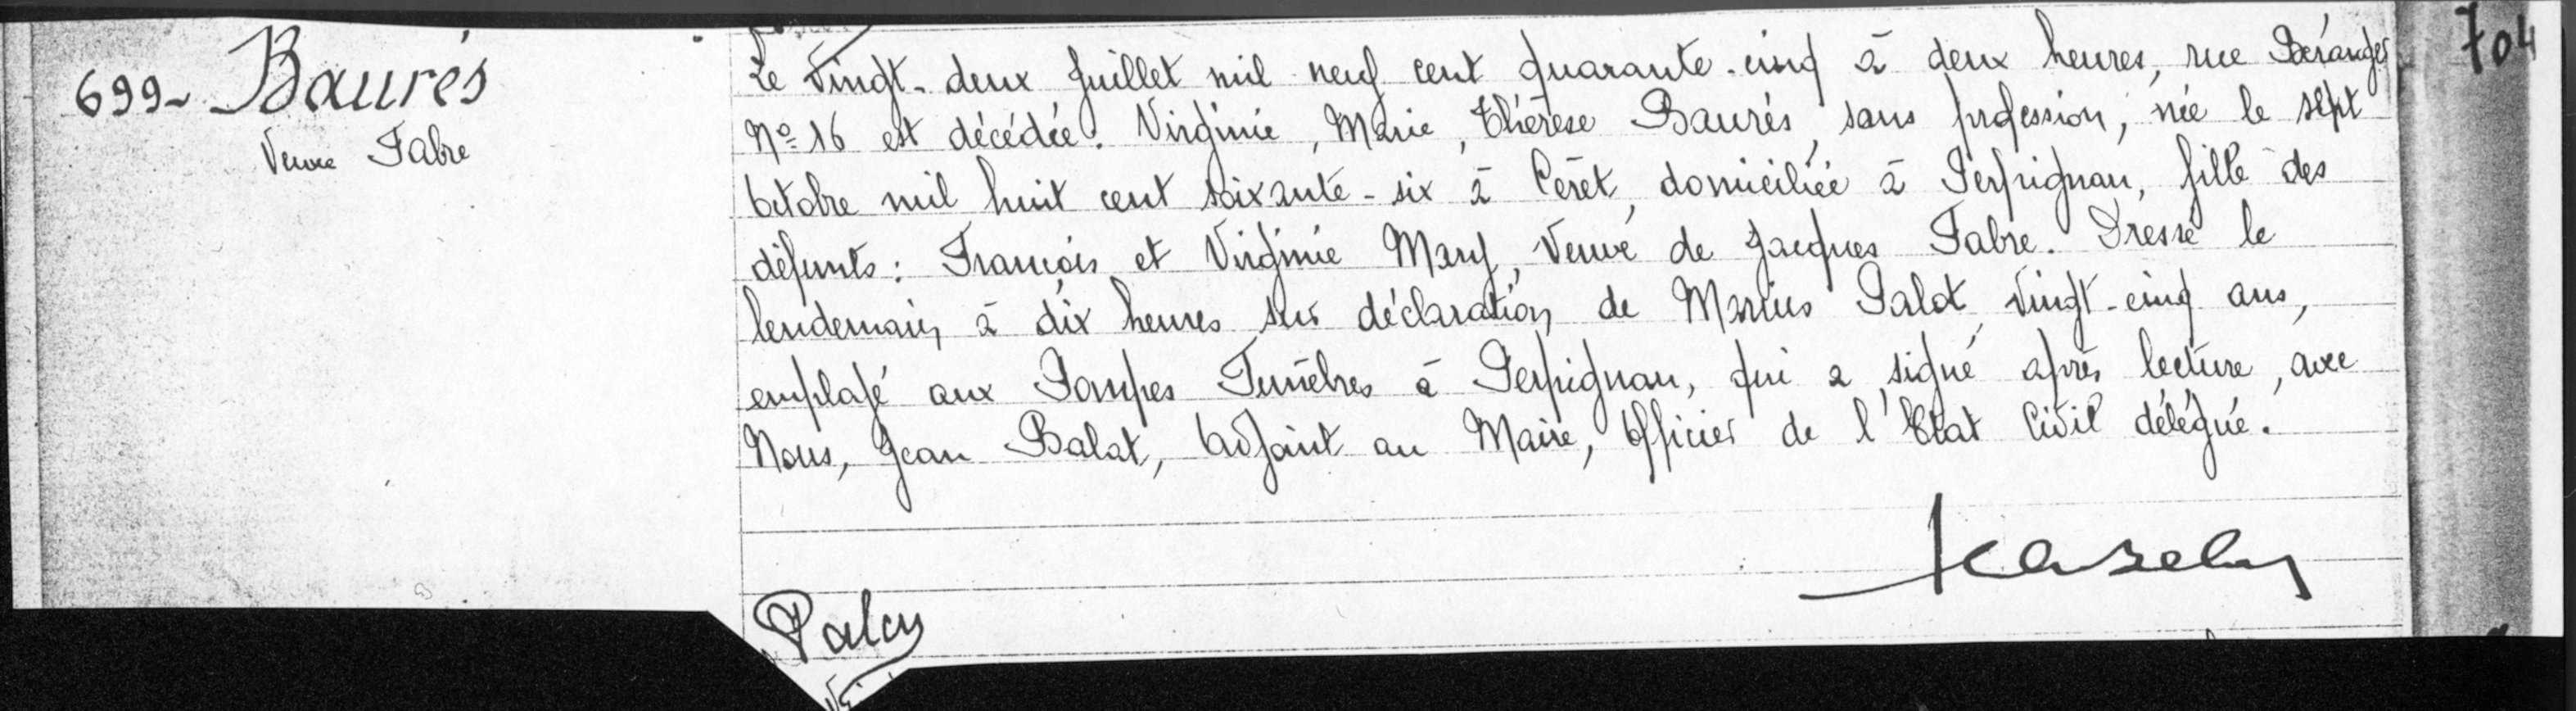 704
699- Baurès
Veuve Fabre
Le Vingt-deux Juillet mil neuf cent quarante-cinq à deux heures, rue Béranger
N° 16 est décédée: Virginie, Marie, Thérèse Baurès, sans profession, née le sept
Octobre mil huit cent soixante-six à Céret, domiciliée à Perpignan, fille des
défunts: François et Virginie Mary, Veuve de Jacques Fabre. Dressé le
lendemain, à dix heures sur déclaration de Marius Palot, vingt-cinq ans,
employé aux Pompes Funèbres à Perpignan, qui a signé après lecture, avec
Nous, Jean Balat, Adjoint au Maire, Officier de l'Etat Civil délégué.